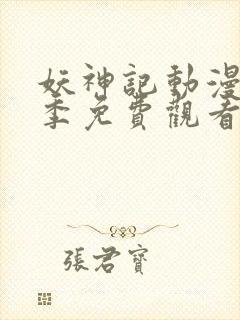 妖神記動漫
季免費觀看
張君寶